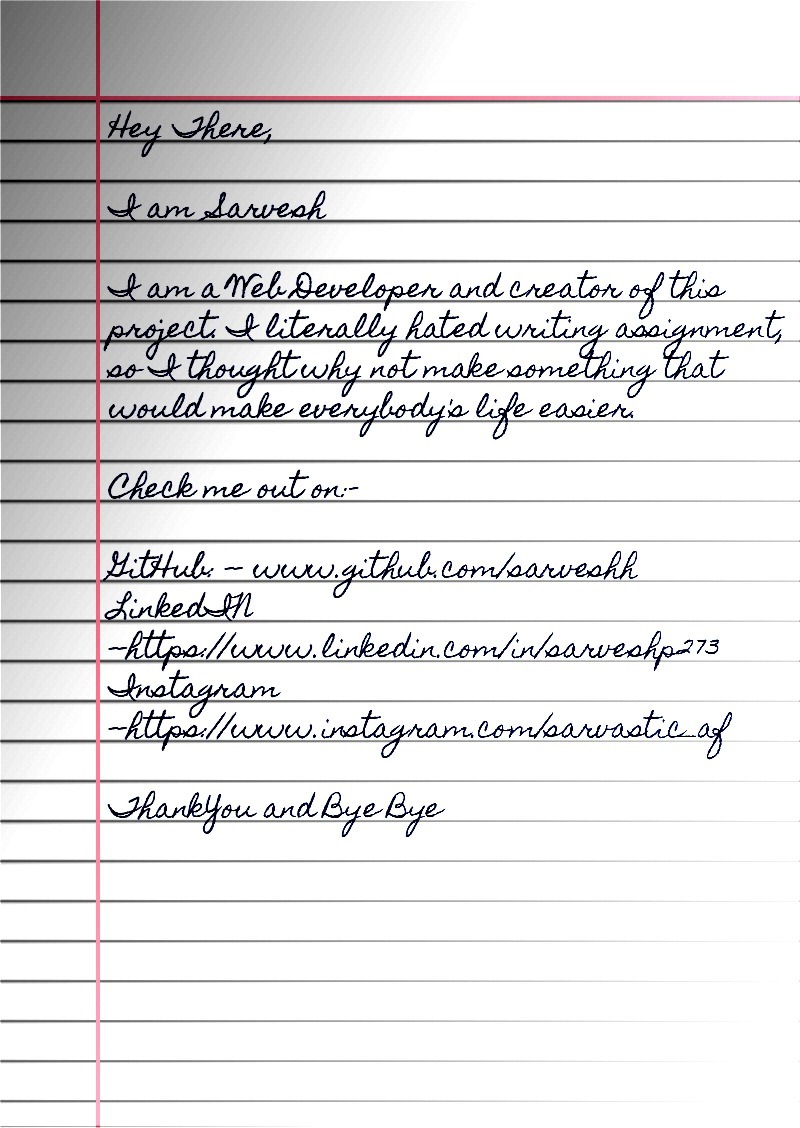 Hey There,
I am Sarvesh
I am a Web Developer and creator of this
project. I literally hated writing assignment,
so I thought why not make something that
would make everybody's life easier.
Check me out on:-
GitHub: - www.github.com/sarveshh
LinkedIN
-https://www.linkedin.com/in/sarveshp273
Instagram
-https://www.instagram.com/sarvastic_af
ThankYou and Bye Bye